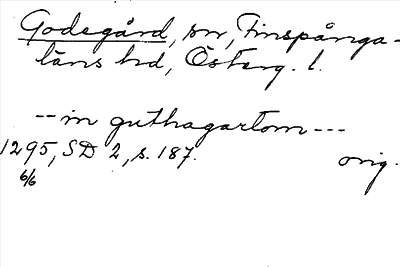 Godegård, sn, Finspånga-
läns hd, Österg. l.
-- in guthagartom ---
1295, SD 2, s. 187. orig.
6/6